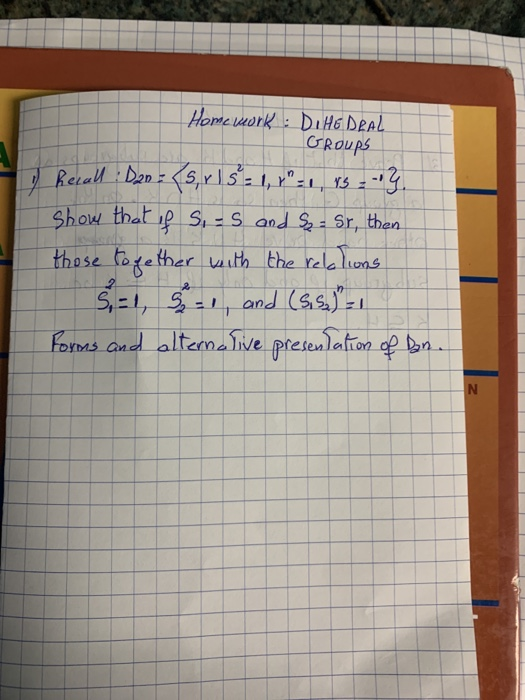 Homework : DIHEDRAL
GROUPS
1) Recall : D2n = {s, r | s² = 1, rⁿ = 1, rs = -1}.
Show that if S₁ = S and S₂ = Sr, then
those together with the relations
S₁² = 1, S₂² = 1, and (S₁S₂)ⁿ = 1
Forms and alternative presentation of D2n.
N